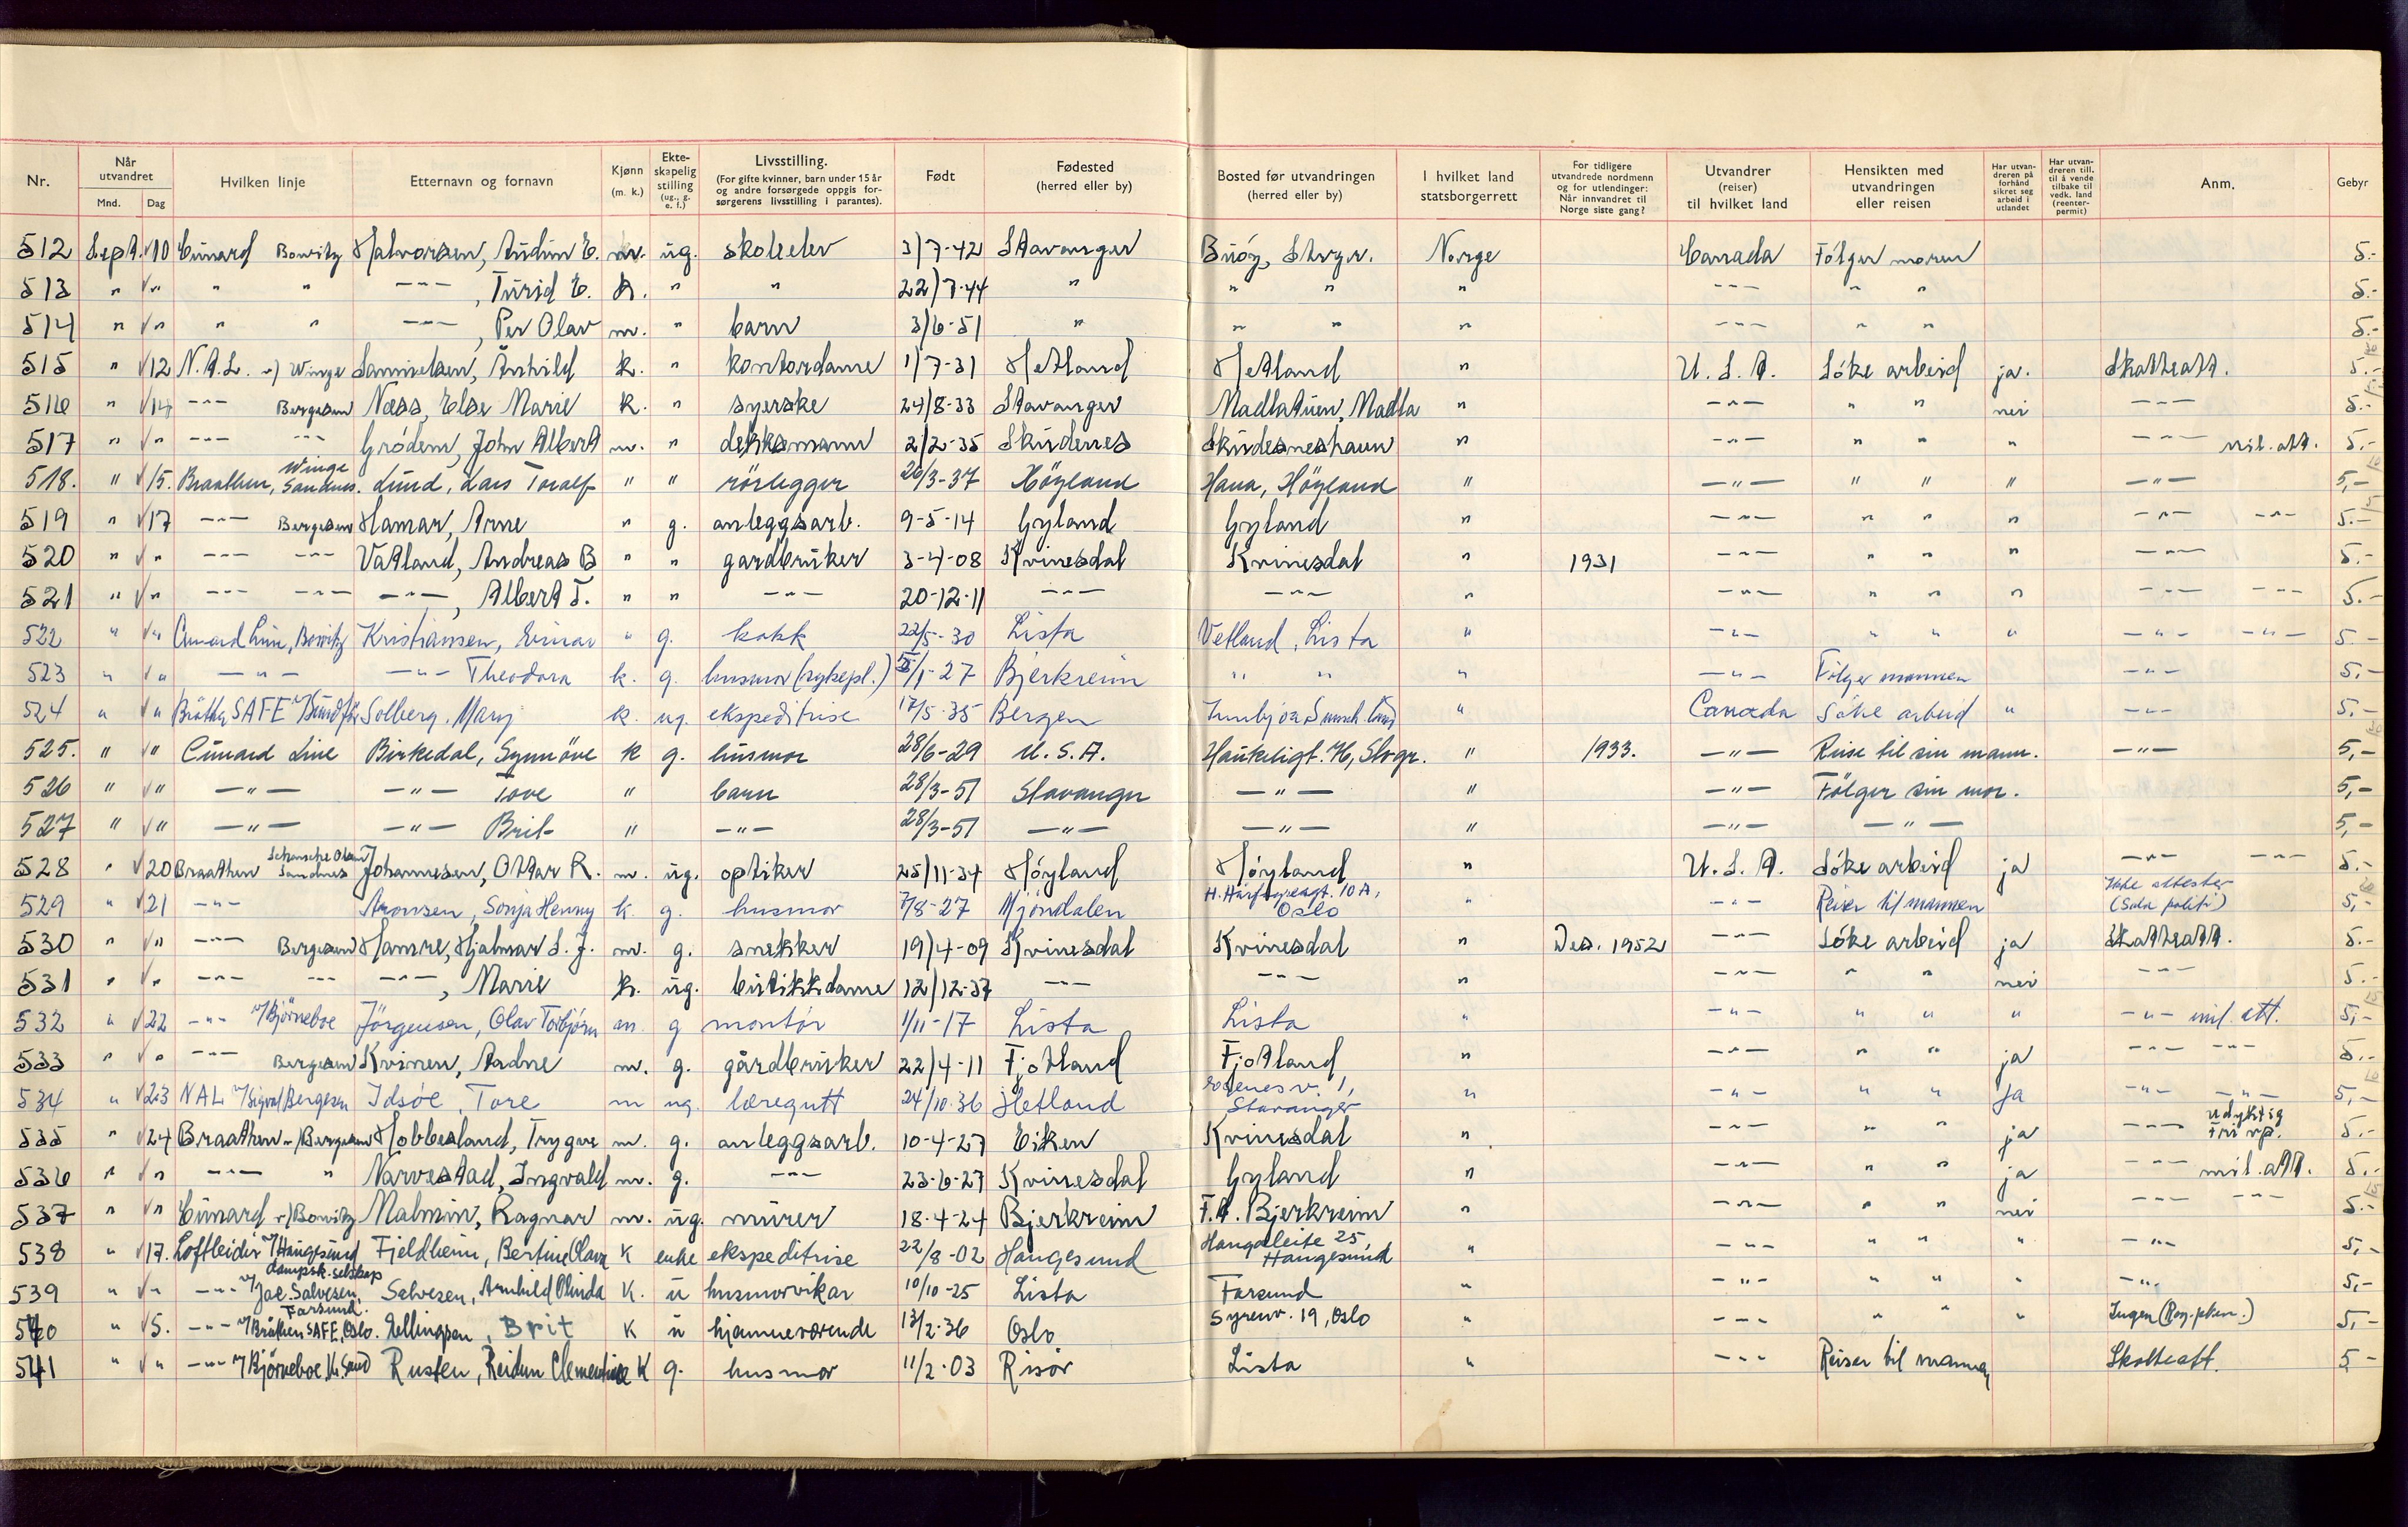 Nr. | Når utvandret Mnd. Dag | Hvilken linje | Etternavn og fornavn | Kjønn (m. k.) | Ekteskapelig stilling (ug., g. e. f.) | Livsstilling. (For gifte kvinner, barn under 15 år og andre forsørgede oppgis forsørgerens livsstilling i parantes). | Født | Fødested (herred eller by) | Bosted før utvandringen (herred eller by) | I hvilket land statsborgerrett | For tidligere utvandrede nordmenn og for utlendinger: Når innvandret til Norge siste gang? | Utvandrer (reiser) til hvilket land | Hensikten med utvandringen eller reisen | Har utvandreren på forhånd sikret seg arbeid i utlandet | Har utvandreren till. til å vende tilbake til vedk. land (reenterpermit) | Anm. | Gebyr
512 Sept. √10 Cunard Bowitz Halvorsen, Audun E. m. ug. skoleelev 3/7-42 Stavanger Buøy, Stvgr. Norge Canada Følger moren 5.-
513 " √" " " -"- , Turid E. k. " " 22/7-44 " " " " -"- " " 5.-
514 " √" " " -"- , Per Olav m. " barn 3/6-51 " " " " -"- " " 5.-
515 " √12 N.A.L. v/ Winge Samuelsen, Anhild k. " kontordame 1/7-31 Hetland Hetland " U.S.A. Søke arbeid ja. Skatteatt. 5.-
516 " √14 -"- Bergesen Næss, Else Marie k. " syerske 24/8-33 Stavanger Madlatuen, Madla " -"- " " nei -"- 5.-
517 " √" -"- -"- Grødem, John Albert m. " dekksmann 2/2-35 Skudenes Skudesneshavn " -"- " " " -"- mil. att. 5.-
518. " √15. Braathen, Winge Sandnes. Lund, Lars Toralf " " rørlegger 26/3-37 Høyland Hana, Høyland " -"- " " " -"- 5,-
519 " √17 -"- Bergesen Hamar, Arne " g. anleggsarb. 9-5-14 Gyland Gyland " -"- " " " -"- -"- 5.-
520 " √" -"- -"- Vatland, Andreas B " " gardbruker 3-4-08 Kvinesdal Kvinesdal " 1931 -"- " " " -"- 5.-
521 " √" -"- -"- -"- , Albert T. " " -"- 20-12-11 -"- -"- " -"- " " " -"- -"- 5.-
522 " √" Cunard Line, Bowitz Kristiansen, Einar " g. kokk 22/5-30 Lista Vetland, Lista " -"- " " " -"- -"- 5.-
523 " √" -"- -"- Theodora k. g. husmor (sykepl.) /1-27 Bjerkreim " " " -"- Følger mannen -"- 5,-
524 " √" Bråthen SAFE Solberg, Mary k. ug. ekspeditrise 17/5-35 Bergen " Canada Søke arbeid " -"- 5,-
525. " √" Cunard Line Birkedal, Synnøve k g. husmor 28/6-29 U.S.A. Haukeligt. 76, Stvgr. " 1933. -"- Reise til sin mann. -"- 5,-
526 " √" -"- -"- Tove " barn 28/3-51 Stavanger -"- " -"- Følger sin mor. 5,-
527 " √" -"- -"- Brit " -"- 28/3-51 -"- -"- " -"- -"- 5,-
528 " √20 Braathen Schanche Olsen Sandnes Johannesen, Ottar R. m. ug. optiker 25/11-34 Høyland Høyland " U.S.A. Søke arbeid ja -"- -"- 5.-
529 " √21 -"- Aronsen, Sonja Henny k. g. husmor 7/8-27 Mjøndalen H. Hårfagresgt. 10 A, Oslo " -"- Reiser til mannen Ikke attester (Sola politi) 5,-
530 " √" -"- Bergesen Hamre, Hjalmar S. J. m. g. snekker 19/4-09 Kvinesdal Kvinesdal " Des. 1952 -"- Søke arbeid ja Skatteatt. 5.-
531 " √" -"- -"- -"- , Marie k. ug. butikkdame 12/12-37 -"- -"- " -"- " " nei -"- 5.-
532 " √22 -"- v/Bjørneboe Jørgensen, Olav Torbjørn m. g montør 1/11-17 Lista Lista " -"- " " " -"- mil. att. 5,-
533 " √" -"- Bergesen Kvinen, Aadne m. g. gårdbruker 22/4-11 Fjotland Fjotland " -"- " " ja -"- -"- 5.-
534 " √23 NAL v/Sigval Bergesen Idsøe, Tore m ug. læregutt 24/10-36 Hetland 1, Stavanger " -"- " " Ja -"- -"- 5,-
535 " √24 Braathen v/Bergesen Hobbesland, Trygve m. g. anleggsarb. 10-4-27 Eiken Kvinesdal " -"- " " ja -"- udyktig Fri vp. 5.-
536 " √" -"- " Narvestad, Ingvald m. g. -"- 23-6-27 Kvinesdal Gyland " -"- " " ja -"- mil. att. 5.-
537 " √" Cunard v/Bowitz Malmin, Ragnar m. ug. murer 18-4-24 Bjerkreim F.A. Bjerkreim " -"- " " nei -"- -"- 5.-
538 " √17. Loftleidir v/Haugesund dampsk.selskap Fjeldheim, Bertine Olava K enke ekspeditrise 22/8-02 Haugesund Haugaleite 25, Haugesund " -"- " " " -"- 5,-
539 " √" -"- v/Jac. Salvesen, Farsund. Salvesen, Arnhild Olinda K. u husmorvikar 10/10-25 Lista Farsund " -"- " " " -"- 5,-
540 " √5. -"- v/Bråthen SAFE, Oslo. Ellingsen, Brit K u hjemmeværende 13/2-36 Oslo Syrenv. 19, Oslo " -"- " " " Ingen 5,-
541 " √" -"- v/Bjørneboe, Kr. Sand Rusten, Reidun Clementine K g. husmor 11/2-03 Risør Lista " -"- Reiser til mannen Skatteatt. 5-